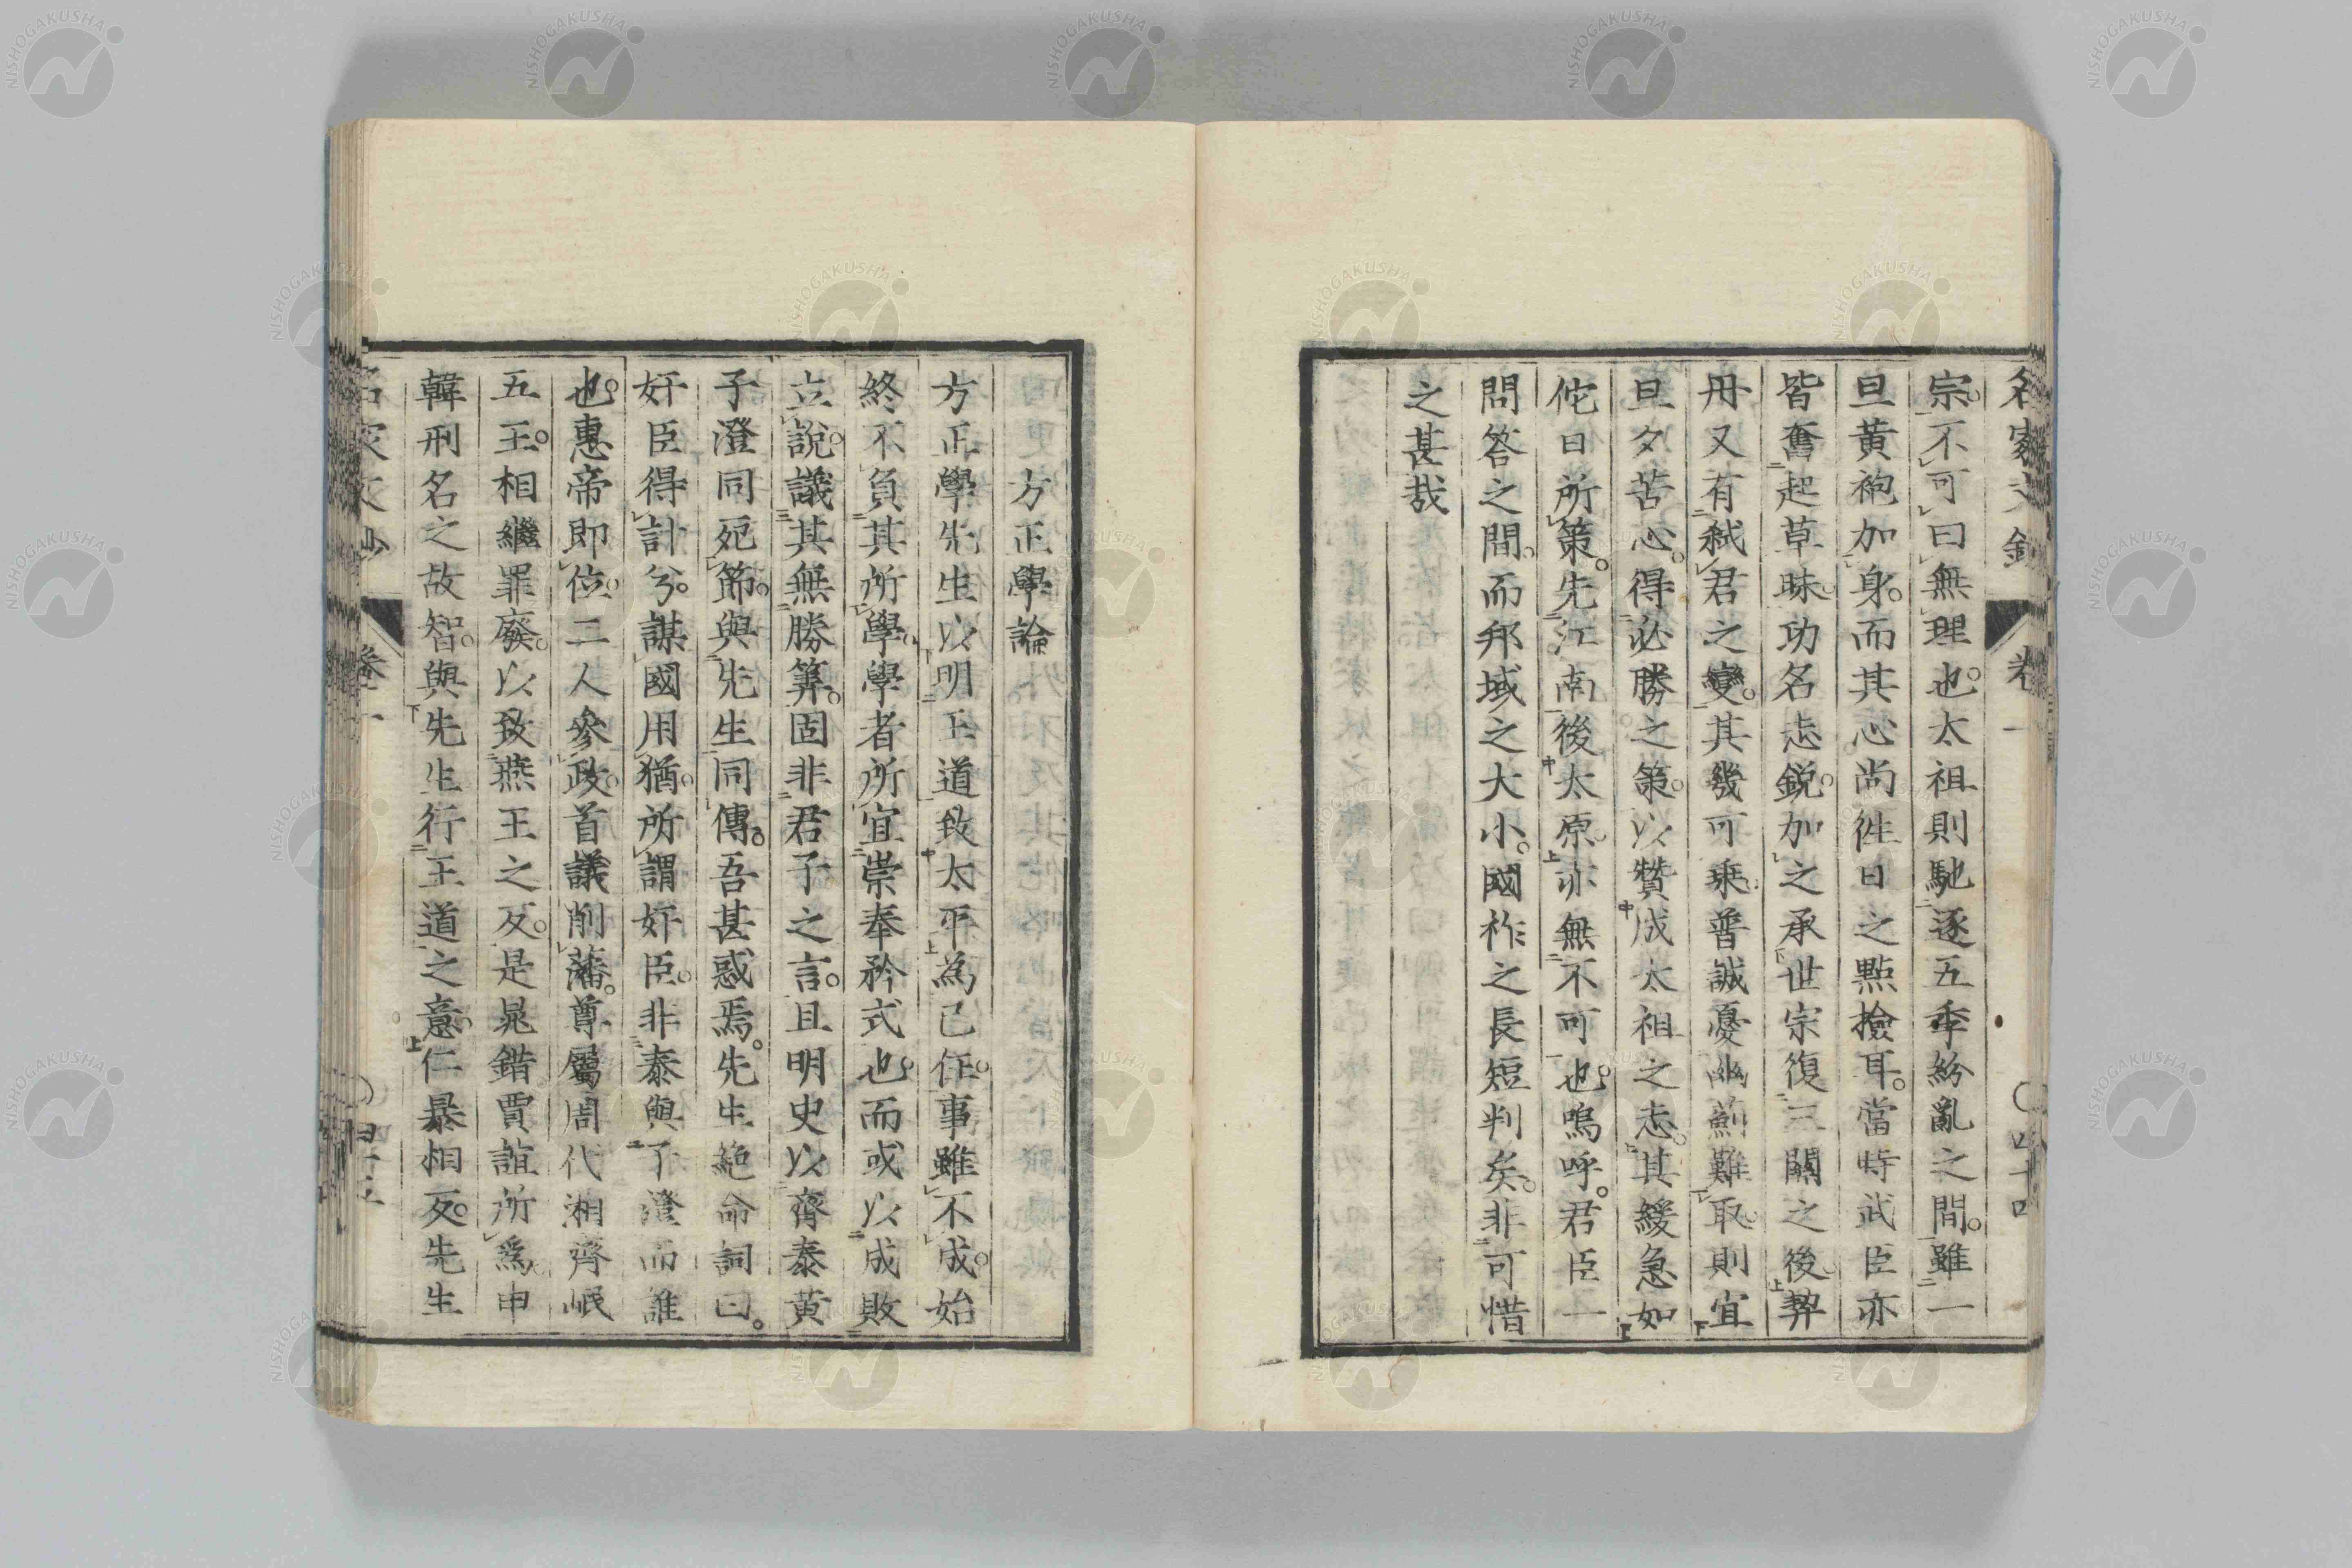 名家文鈔 卷一 四十四
宗。不可曰無理也。太祖則馳逐五季紛亂之間。雖一
旦黄袍加身。而其心尚徃日之點撿耳。當時武臣亦
皆奮起草昧。功名志鋭。加之承世宗復三關之後。契
丹又有弑君之變。其幾可乘。普誠憂幽薊難取。則宜
旦夕苦心。得必勝之策。以贊成太祖之志。其緩急如
佗日所策。先江南後太原。亦無不可也。嗚呼。君臣一
問答之間。而邦域之大小。國祚之長短判矣。非可惜
之甚哉
方正學論
方正學先生以明王道致太平為己任。事雖不成。始
終不負其所學。學者所宜崇奉矜式也。而或以成敗
立說。議其無勝算。固非君子之言。且明史以齊泰黄
子澄同死節。與先生同傳。吾甚惑焉。先生絶命詞曰。
奸臣得計兮。謀國用猶。所謂奸臣。非泰與子澄而誰
也。惠帝即位。二人參政。首議削藩。尊屬周代湘齊岷
五王。相繼罪廢。以致燕王之反。是晁錯賈誼所爲申
韓刑名之故智。與先生行王道之意。仁暴相反。先生
名家文鈔 卷一 四十五
NISHOGAKUSHA